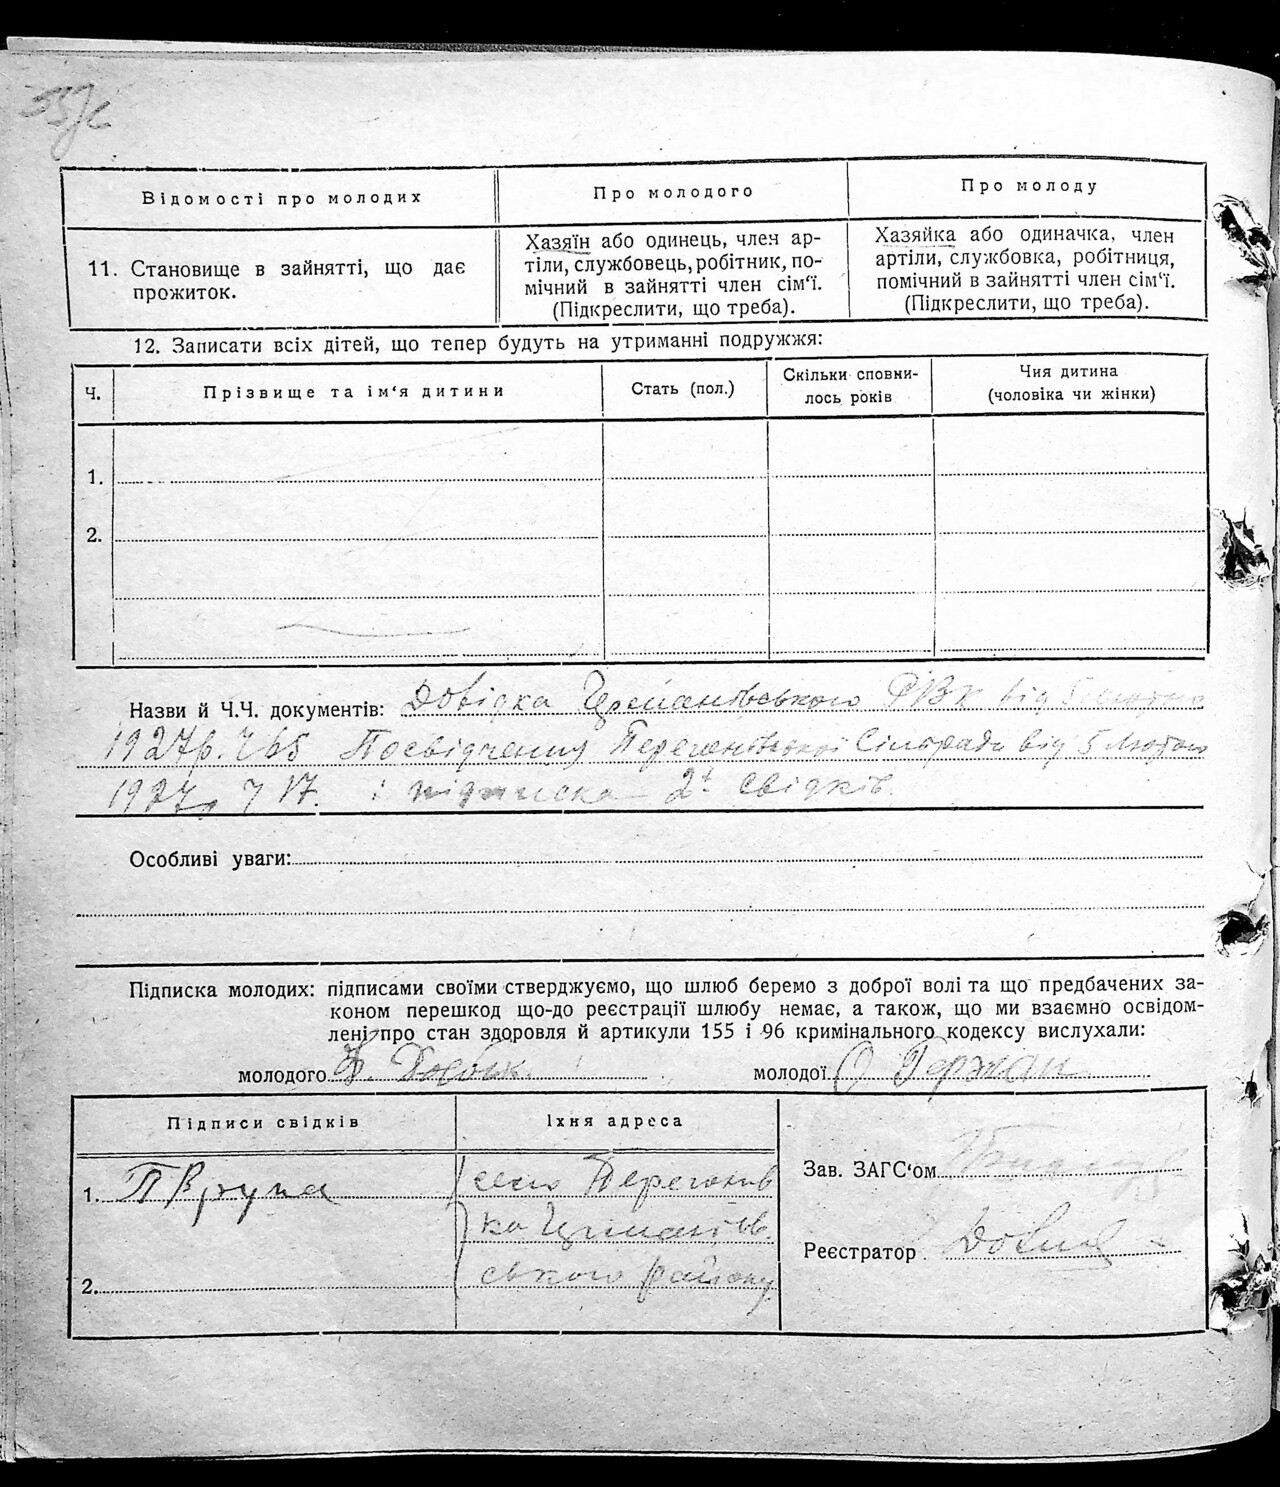 Відомості про молодих
Про молодого
Про молоду
11. Становище в зайнятті, що дає
прожиток.
Хазяїн або одинець, член ар-
тіли, службовець, робітник, по-
мічний в зайнятті член сім'ї.
(Підкреслити, що треба).
Хазяйка або одиначка, член
артіли, службовка, робітниця,
помічний в зайнятті член сім'ї.
(Підкреслити, що треба).
12. Записати всіх дітей, що тепер будуть на утриманні подружжя:
Ч.
Прізвище та ім'я дитини
Стать (пол.)
Скільки сповни-
лось років
Чия дитина
(чоловіка чи жінки)
1.
2.
Назви й Ч.Ч. документів: Довідка РВК від 5 лютого
1927р. Ч 65 Посвідчення Сільради від 5 Лютого
1927р Ч 17. і підписка 2х свідків.
Особливі уваги:
Підписка молодих: підписами своїми стверджуємо, що шлюб беремо з доброї волі та що предбачених за-
коном перешкод що-до реєстрації шлюбу немає, а також, що ми взаємно освідом-
лені про стан здоров'я й артикули 155 і 96 кримінального кодексу вислухали:
молодого
молодої О Гержан
Підписи свідків
Їхня адреса
1.
село Перегонів
ка
ського району
2.
Зав. ЗАГС'ом
Реєстратор